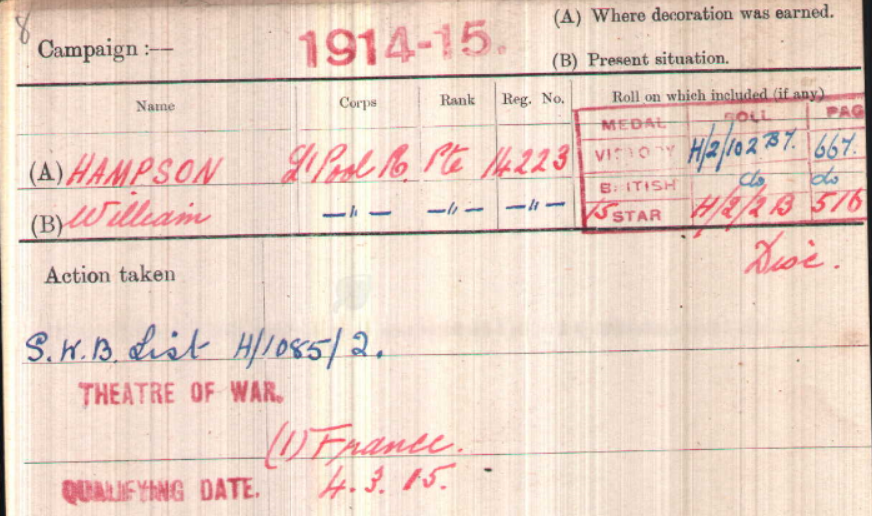 8
(A) Where decoration was earned.
Campaign :—
1914-15.
(B) Present situation.
Name Corps Rank Reg. No. Roll on which included (if any)
MEDAL ROLL PAG
(A) HAMPSON L'Pool R. Pte 14223 VICTORY H/2/102 B7. 667.
BRITISH do do
(B) William —"— —"— —"— 15 STAR H/2/2B 516
Disc.
Action taken
S.W.B. List H/1085/2.
THEATRE OF WAR.
(1) France.
QUALIFYING DATE. 4.3.15.